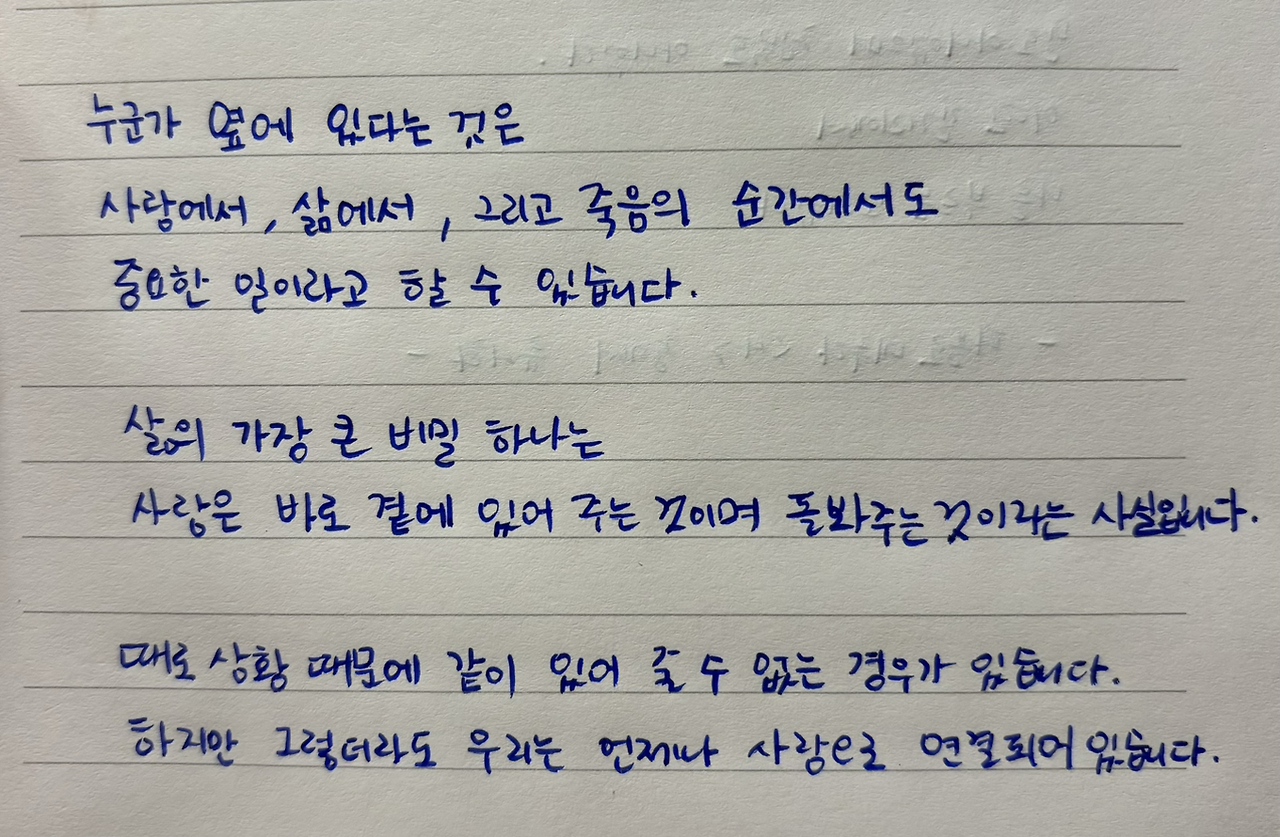 누군가 옆에 있다는 것은
사랑에서, 삶에서, 그리고 죽음의 순간에서도
중요한 일이라고 할 수 있습니다.
삶의 가장 큰 비밀 하나는
사랑은 바로 곁에 있어 주는 것이며 돌봐주는 것이라는 사실입니다.
때로 상황 때문에 같이 있어 줄 수 없는 경우가 있습니다.
하지만 그렇더라도 우리는 언제나 사랑으로 연결되어 있습니다.